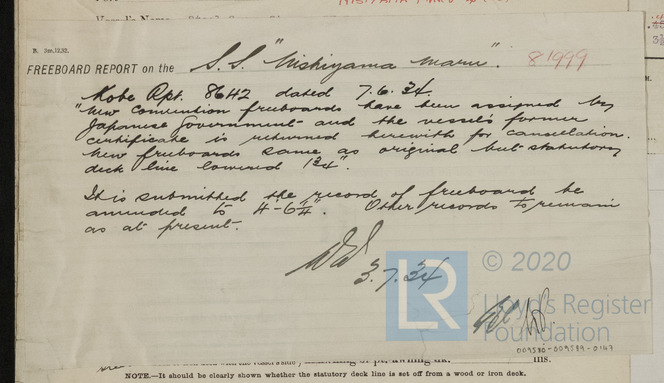 R. Jun. 12.32.
FREEBOARD REPORT on the S.S. "Nishiyama Maru". 81999
Kobe Rpt. 8642 dated 7.6.34.
"New Convention freeboards have been assigned by
Japanese Government and the vessel's former
certificate is returned herewith for cancellation.
New freeboards same as original but statutory
deck line lowered 1¾".
It is submitted the record of freeboard be
amended to 4'-6¼". Other records to remain
as at present.
3.7.34
LR © 2020
Lloyd's Register
Foundation
009580-009589-0147
NOTE.—It should be clearly shown whether the statutory deck line is set off from a wood or iron deck.